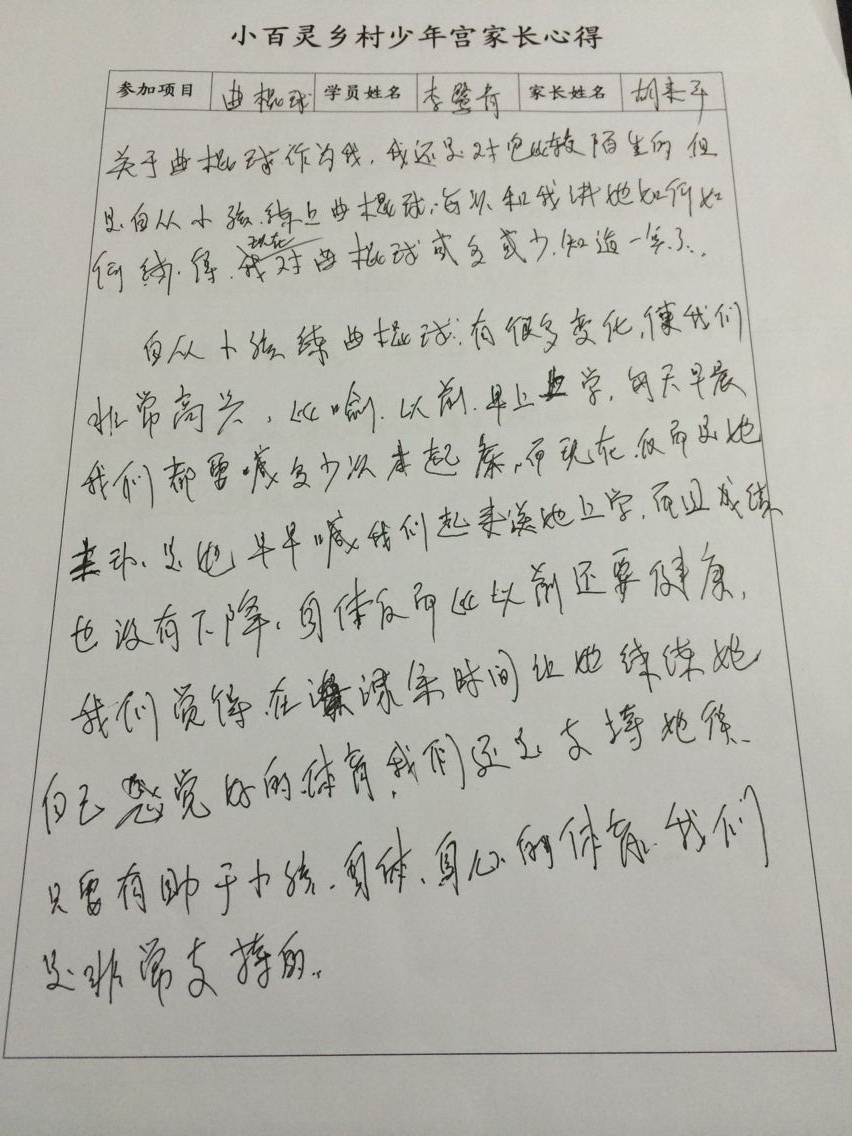 小百灵乡村少年宫家长心得
参加项目 曲棍球 学员姓名 李 家长姓名 胡来平
关于曲棍球作为我，我还是对它比较陌生的但
是自从小孩练上曲棍球，每次和我讲她如何如
何练得，现在我对曲棍球或多或少知道一些了。
自从小孩练曲棍球，有很多变化，使我们
非常高兴，比喻以前早上上学，每天早晨
我们都要喊多少次来起床，而现在反而是她
主动，是她早早喊我们起来送她上学，而且成绩
也没有下降，身体反而比以前还要健康，
我们觉得在课余时间让她练练她
自己感觉好的体育，我们还是支持她
只要有助于小孩身体、身心的体育，我们
是非常支持的。